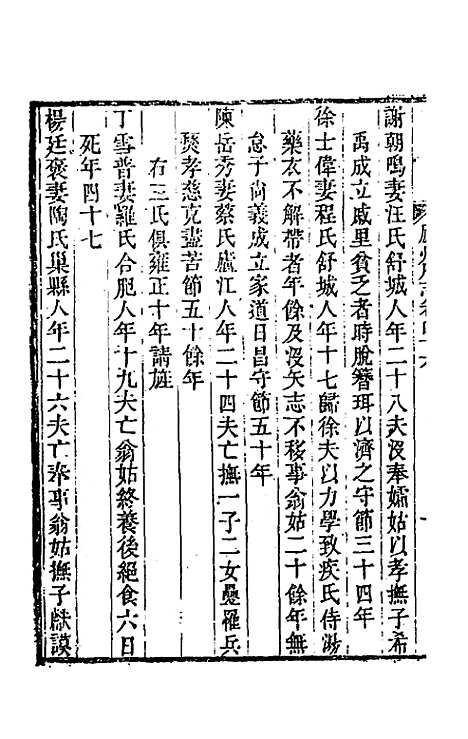 謝朝鳴妻汪氏舒城人年二十八夫沒奉孀姑以孝撫子希
禹成立戚里貧乏者時脫簪珥以濟之守節三十四年
徐士偉妻程氏舒城人年十七歸徐夫以力學致疾氏侍湯
藥衣不解帶者年餘及沒矢志不移事翁姑二十餘年無
怠子尚義成立家道日昌守節五十年
陳岳秀妻蔡氏廬江人年二十四夫亡撫一子二女疊罹兵
燹孝慈克盡苦節五十餘年
右三氏俱雍正十年請旌
丁雪普妻羅氏合肥人年十九夫亡翁姑終養後絕食六日
死年四十七
楊廷褒妻陶氏巢縣人年二十六夫亡奉事翁姑撫子獻謨